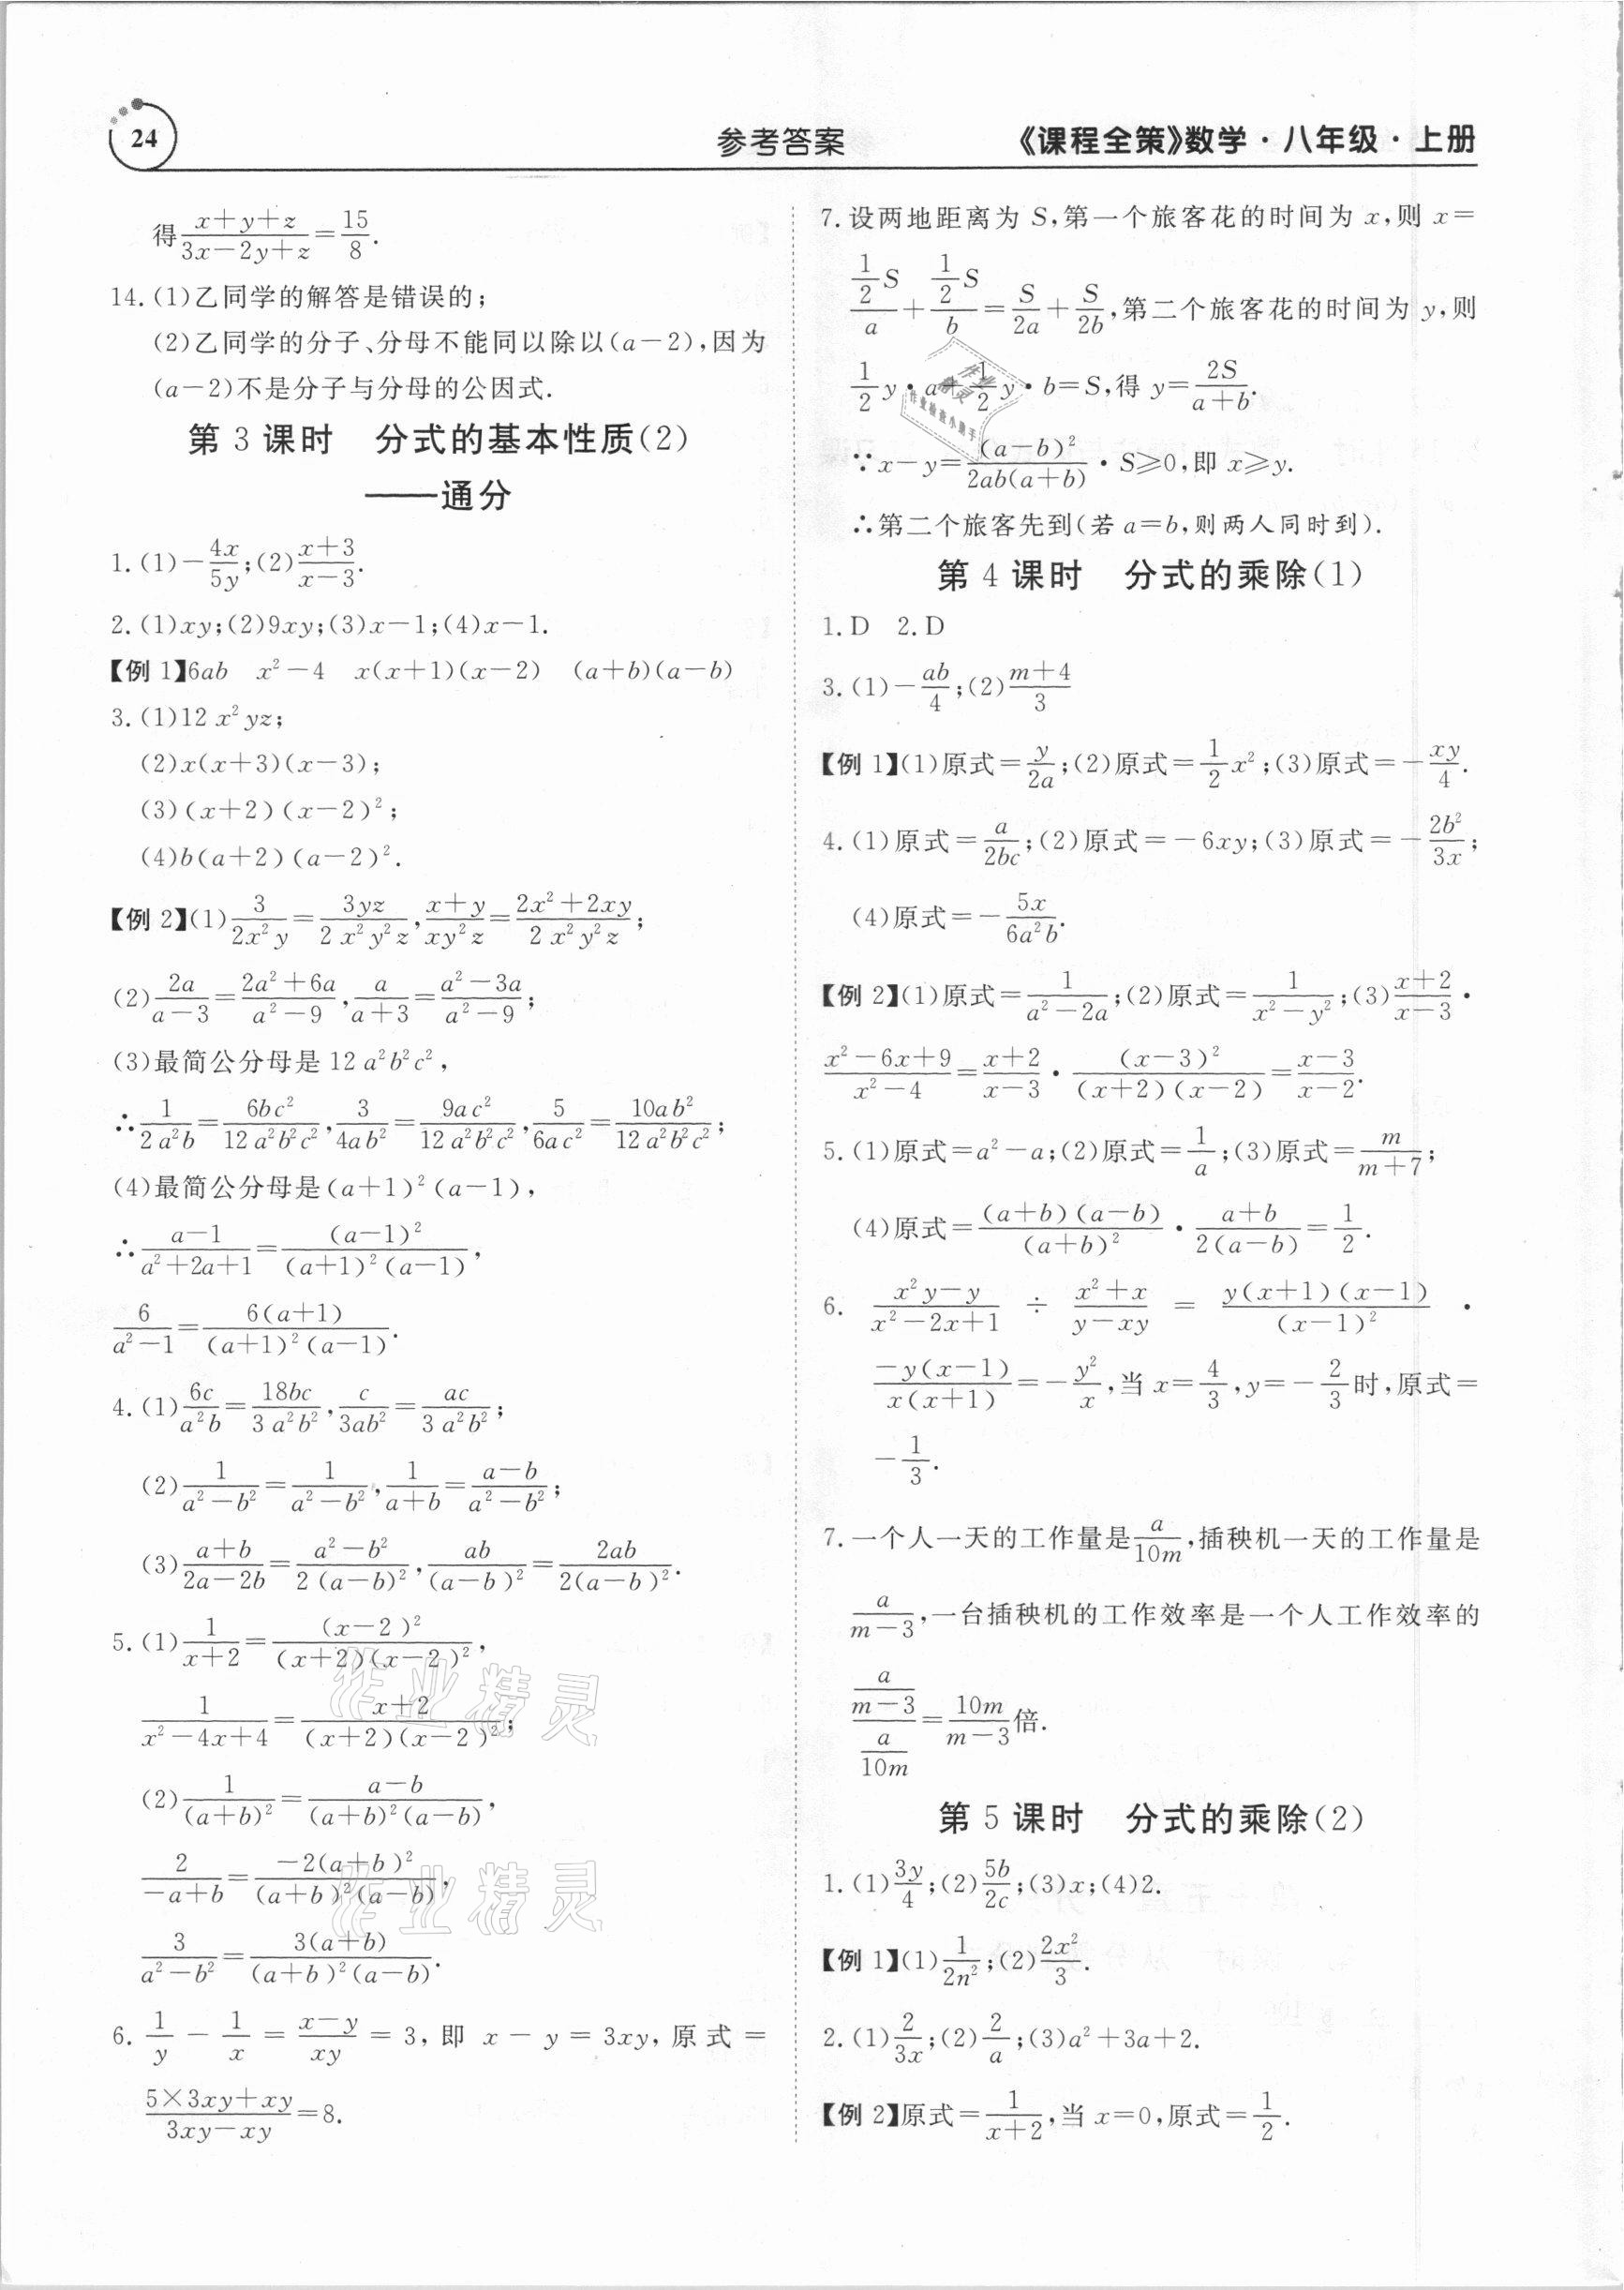 24
参考答案
《课程全策》数学·八年级·上册
得(x+y+z)/(3x-2y+z)=15/8.
14.(1)乙同学的解答是错误的;
(2)乙同学的分子、分母不能同以除以(a-2),因为
(a-2)不是分子与分母的公因式.
第3课时 分式的基本性质(2)
——通分
1.(1)-4x/5y;(2)(x+3)/(x-3).
2.(1)xy;(2)9xy;(3)x-1;(4)x-1.
【例1】6ab x²-4 x(x+1)(x-2) (a+b)(a-b)
3.(1)12x²yz;
(2)x(x+3)(x-3);
(3)(x+2)(x-2)²;
(4)b(a+2)(a-2)².
【例2】(1)3/(2x²y)=3yz/(2x²y²z),(x+y)/(xy²z)=(2x²+2xy)/(2x²y²z);
(2)2a/(a-3)=(2a²+6a)/(a²-9),a/(a+3)=(a²-3a)/(a²-9);
(3)最简公分母是12a²b²c²,
∴1/(2a²b)=6bc²/(12a²b²c²),3/(4ab²)=9ac²/(12a²b²c²),5/(6ac²)=10ab²/(12a²b²c²);
(4)最简公分母是(a+1)²(a-1),
∴(a-1)/(a²+2a+1)=(a-1)²/((a+1)²(a-1)),
6/(a²-1)=6(a+1)/((a+1)²(a-1)).
4.(1)6c/(a²b)=18bc/(3a²b²),c/(3ab²)=ac/(3a²b²);
(2)1/(a²-b²)=1/(a²-b²),1/(a+b)=(a-b)/(a²-b²);
(3)(a+b)/(2a-2b)=(a²-b²)/(2(a-b)²),ab/(a-b)²=2ab/(2(a-b)²).
5.(1)1/(x+2)=(x-2)²/((x+2)(x-2)²),
1/(x²-4x+4)=(x+2)/((x+2)(x-2)²);
(2)1/(a+b)²=(a-b)/((a+b)²(a-b)),
2/(-a+b)=-2(a+b)²/((a+b)²(a-b)),
3/(a²-b²)=3(a+b)/((a+b)²(a-b)).
6. 1/y-1/x=(x-y)/xy=3,即x-y=3xy,原式=
(5×3xy+xy)/(3xy-xy)=8.
7.设两地距离为S,第一个旅客花的时间为x,则x=
(1/2 S)/a+(1/2 S)/b=S/2a+S/2b,第二个旅客花的时间为y,则
1/2 y·a+1/2 y·b=S,得y=2S/(a+b).
∵x-y=(a-b)²/(2ab(a+b))·S≥0,即x≥y.
∴第二个旅客先到(若a=b,则两人同时到).
第4课时 分式的乘除(1)
1.D 2.D
3.(1)-ab/4;(2)(m+4)/3
【例1】(1)原式=y/2a;(2)原式=1/2 x²;(3)原式=-xy/4.
4.(1)原式=a/2bc;(2)原式=-6xy;(3)原式=-2b²/3x;
(4)原式=-5x/(6a²b).
【例2】(1)原式=1/(a²-2a);(2)原式=1/(x²-y²);(3)(x+2)/(x-3)·
(x²-6x+9)/(x²-4)=(x+2)/(x-3)·(x-3)²/((x+2)(x-2))=(x-3)/(x-2).
5.(1)原式=a²-a;(2)原式=1/a;(3)原式=m/(m+7);
(4)原式=(a+b)(a-b)/(a+b)²·(a+b)/(2(a-b))=1/2.
6. (x²y-y)/(x²-2x+1)÷(x²+x)/(y-xy)=y(x+1)(x-1)/(x-1)²·
-y(x-1)/(x(x+1))=-y²/x,当x=4/3,y=-2/3时,原式=
-1/3.
7.一个人一天的工作量是a/10m,插秧机一天的工作量是
a/(m-3),一台插秧机的工作效率是一个人工作效率的
(a/(m-3))/(a/10m)=10m/(m-3)倍.
第5课时 分式的乘除(2)
1.(1)3y/4;(2)5b/2c;(3)x;(4)2.
【例1】(1)1/(2n²);(2)2x²/3.
2.(1)2/3x;(2)2/a;(3)a²+3a+2.
【例2】原式=1/(x+2),当x=0,原式=1/2.
作业精灵
作业精灵
作业精灵
作业检查小助手